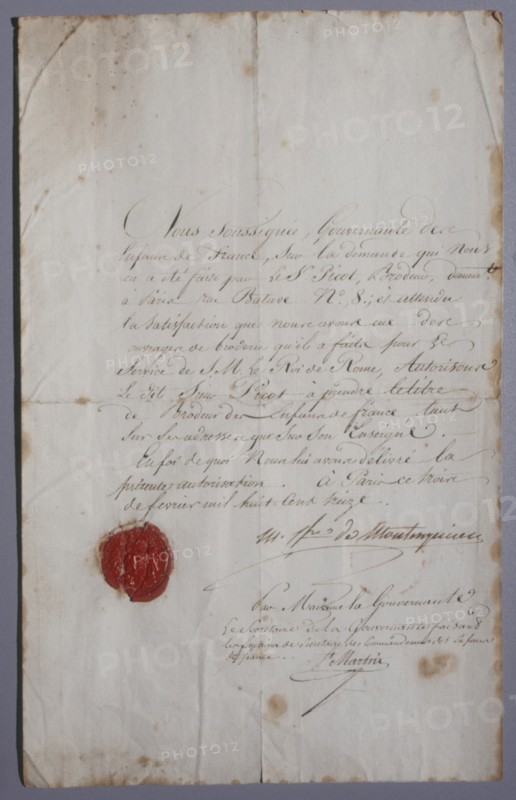 Nous Soussignée, Gouvernante des
Enfans de France, Sur la demande qui Nous
en a été faite par le Sr. Picot, Brodeur,
à Paris rue Batave No. 8; et attendu
la Satisfaction que nous avons eue des
ouvrages de broderie qu'il a faits pour le
Service de S. M. le Roi de Rome, Autorisons
le dit Sieur Picot à prendre le titre
de Brodeur des Enfans de france tant
Sur Ses adresses que Sur Son Enseigne.
En foi de quoi Nous lui avons délivré la
présente autorisation. À Paris ce
de fevrier mil huit Cent
de Montesquiou
Par Madame la Gouvernante
Le Secretaire de la Gouvernante
de france
PHOTO12